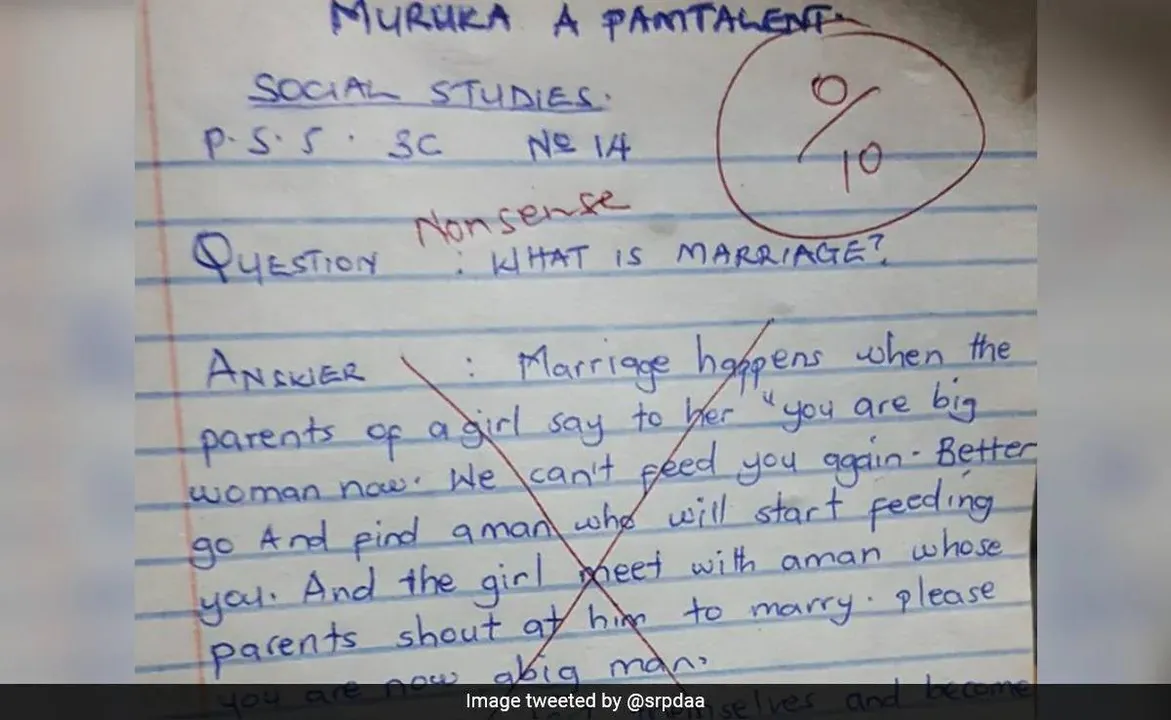 MURUKA A PAMTALENT.
SOCIAL STUDIES.
P.S.S. 3C No 14
0/10
Nonsense
QUESTION : WHAT IS MARRIAGE?
ANSWER : Marriage happens when the
parents of a girl say to her "you are big
woman now. We can't feed you again. Better
go And find a man who will start feeding
you. And the girl meet with aman whose
parents shout at him to marry. please
you are now abig man.
selves and become
Image tweeted by @srpdaa